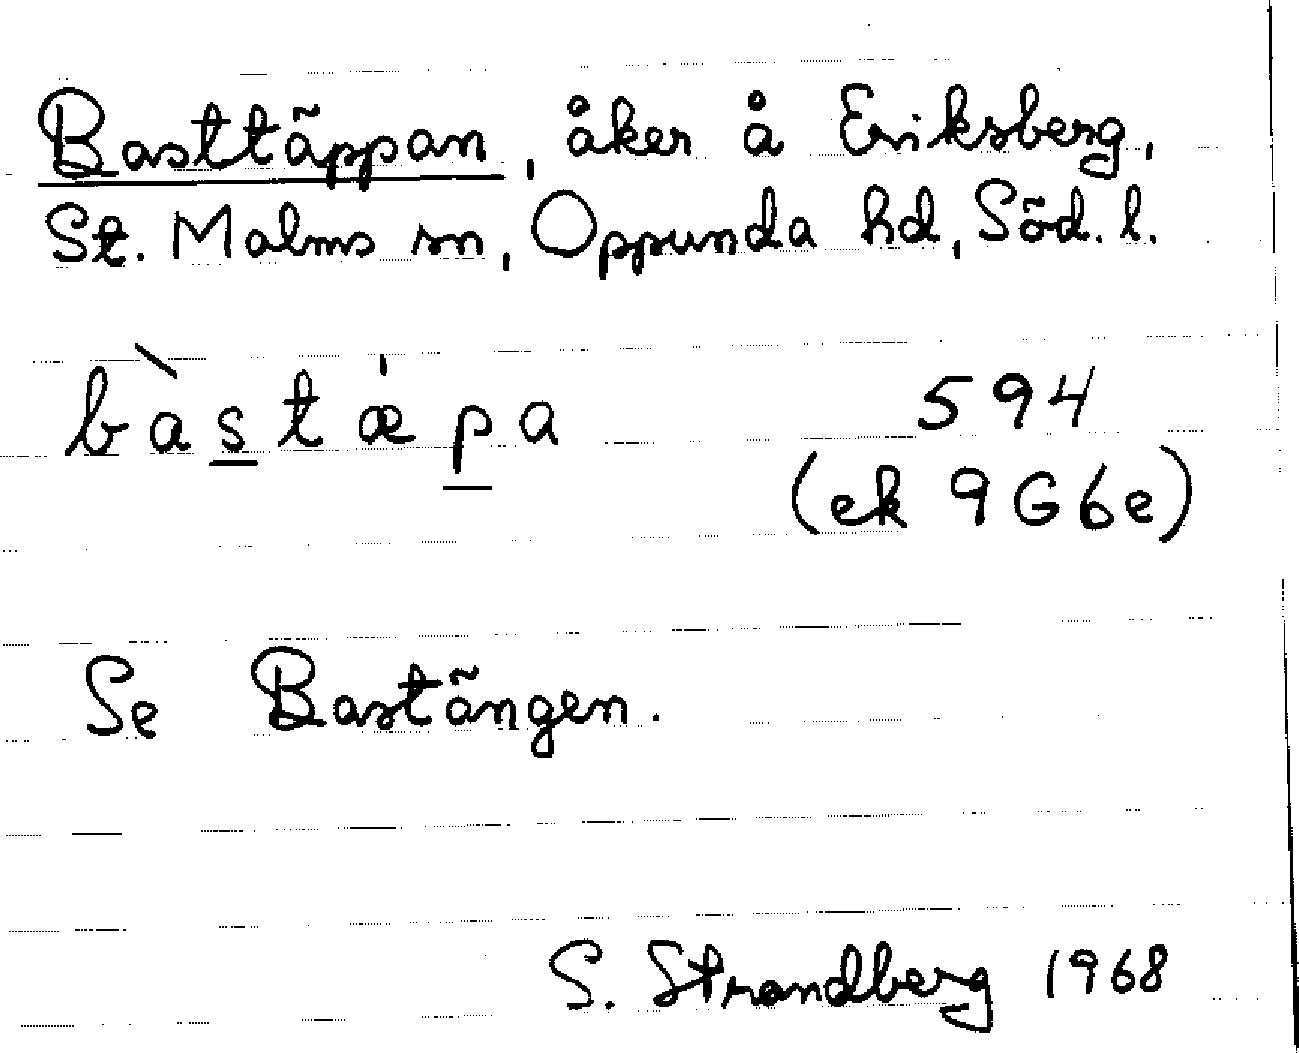 Basttäppan, åker å Eriksberg,
St. Malms sn, Oppunda hd, Söd. l.
bàstæ̍pa 594
(ek 9G6e)
Se Bastängen.
S. Strandberg 1968